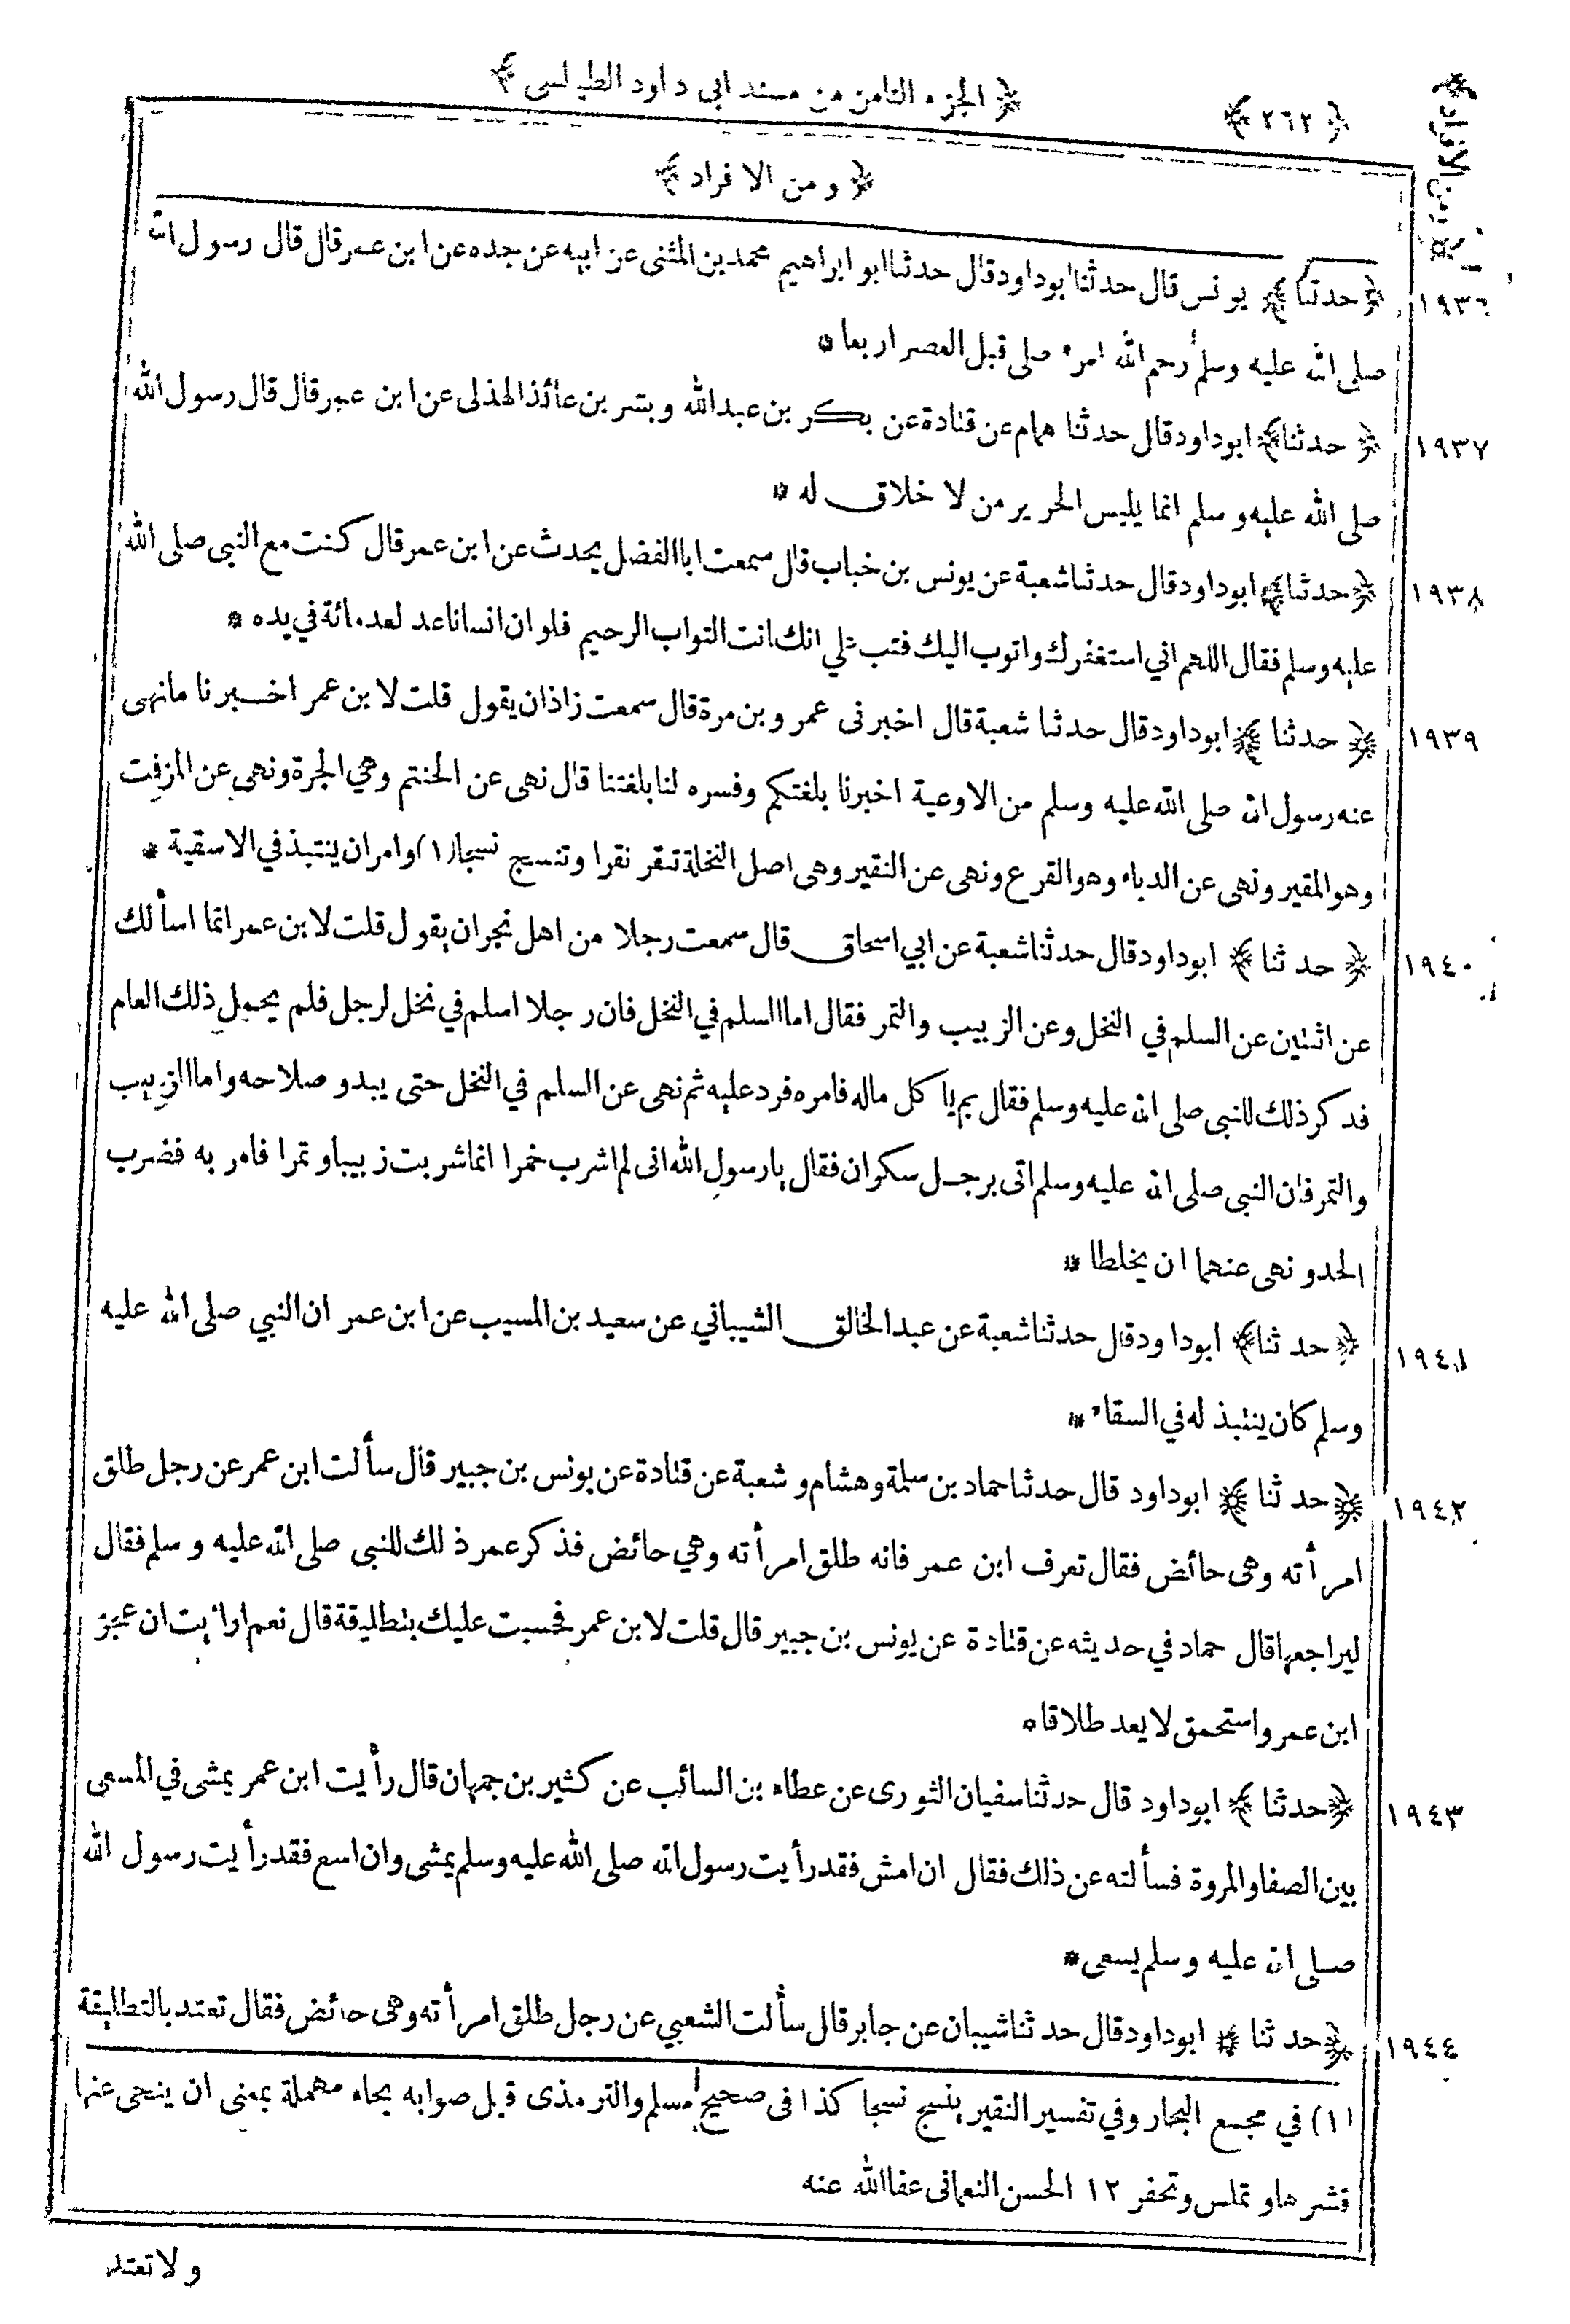 ﴿ ومن الافراد ﴾
﴿ ٢٦٢ ﴾
﴿ الجزء الثامن من مسند ابى داود الطيالسى ﴾
﴿ ومن الافراد ﴾
١٩٣٦ ﴿ حدثنا ﴾ يونس قال حدثنا ابوداود قال حدثنا ابو ابراهيم محمد بن المثنى عن ابيه عن جده عن ابن عمر قال قال رسول الله
صلى الله عليه وسلم رحم الله امرء صلى قبل العصر اربعا *
١٩٣٧ ﴿ حدثنا ﴾ ابوداود قال حدثنا همام عن قتادة عن بكر بن عبد الله وبشر بن عائذ الهذلى عن ابن عمر قال قال رسول الله
صلى الله عليه وسلم انما يلبس الحرير من لا خلاق له *
١٩٣٨ ﴿ حدثنا ﴾ ابوداود قال حدثنا شعبة عن يونس بن خباب قال سمعت ابا الفضل يحدث عن ابن عمر قال كنت مع النبى صلى الله
عليه وسلم فقال اللهم اني استغفرك واتوب اليك فتب علي انك انت التواب الرحيم فلو ان انسانا عد لعد مائة في يده *
١٩٣٩ ﴿ حدثنا ﴾ ابوداود قال حدثنا شعبة قال اخبرنى عمرو بن مرة قال سمعت زاذان يقول قلت لابن عمر اخبرنا ما نهى
عنه رسول الله صلى الله عليه وسلم من الاوعية اخبرنا بلغتكم وفسره لنا بلغتنا قال نهى عن الحنتم وهي الجرة ونهى عن المزفت
وهو المقير ونهى عن الدباء وهو القرع ونهى عن النقير وهى اصل النخلة تنقر نقرا وتنسج نسجا (١) وامر ان ينتبذ في الاسقية *
١٩٤٠ ﴿ حدثنا ﴾ ابوداود قال حدثنا شعبة عن ابي اسحاق قال سمعت رجلا من اهل نجران يقول قلت لابن عمر انما اسألك
عن اثنتين عن السلم في النخل وعن الزبيب والتمر فقال اما السلم في النخل فان رجلا اسلم في نخل لرجل فلم يحمل ذلك العام
فدكر ذلك للنبى صلى الله عليه وسلم فقال بم ياكل ماله فامره فرد عليه ثم نهى عن السلم في النخل حتى يبدو صلاحه واما الزبيب
والتمر فان النبى صلى الله عليه وسلم اتى برجل سكران فقال يا رسول الله انى لم اشرب خمرا انما شربت زبيبا وتمرا فامر به فضرب
الحد ونهى عنهما ان يخلطا *
١٩٤١ ﴿ حدثنا ﴾ ابوداود قال حدثنا شعبة عن عبد الخالق الشيباني عن سعيد بن المسيب عن ابن عمر ان النبي صلى الله عليه
وسلم كان ينتبذ له في السقاء *
١٩٤٢ ﴿ حدثنا ﴾ ابوداود قال حدثنا حماد بن سلمة وهشام وشعبة عن قتادة عن يونس بن جبير قال سألت ابن عمر عن رجل طلق
امرأته وهى حائض فقال تعرف ابن عمر فانه طلق امرأته وهي حائض فذكر عمر ذلك للنبى صلى الله عليه وسلم فقال
ليراجعها قال حماد في حديثه عن قتادة عن يونس بن جبير قال قلت لابن عمر فحسبت عليك بتطليقة قال نعم ارايت ان عجز
ابن عمر واستحمق لا يعد طلاقا *
١٩٤٣ ﴿ حدثنا ﴾ ابوداود قال حدثنا سفيان الثورى عن عطاء بن السائب عن كثير بن جمهان قال رأيت ابن عمر يمشى في المسعى
بين الصفا والمروة فسألته عن ذلك فقال ان امش فقد رأيت رسول الله صلى الله عليه وسلم يمشى وان اسع فقد رأيت رسول الله
صلى الله عليه وسلم يسعى *
١٩٤٤ ﴿ حدثنا ﴾ ابوداود قال حدثنا شيبان عن جابر قال سألت الشعبي عن رجل طلق امرأته وهى حائض فقال تعتد بالتطليقة
(١) في مجمع البحار وفي تفسير النقير ينسج نسجا كذا فى صحيح مسلم والترمذى قيل صوابه بحاء مهملة بمعنى ان ينحى عنها
قشرها وتملس وتحفر ١٢ الحسن النعمانى عفا الله عنه
ولا تعتد